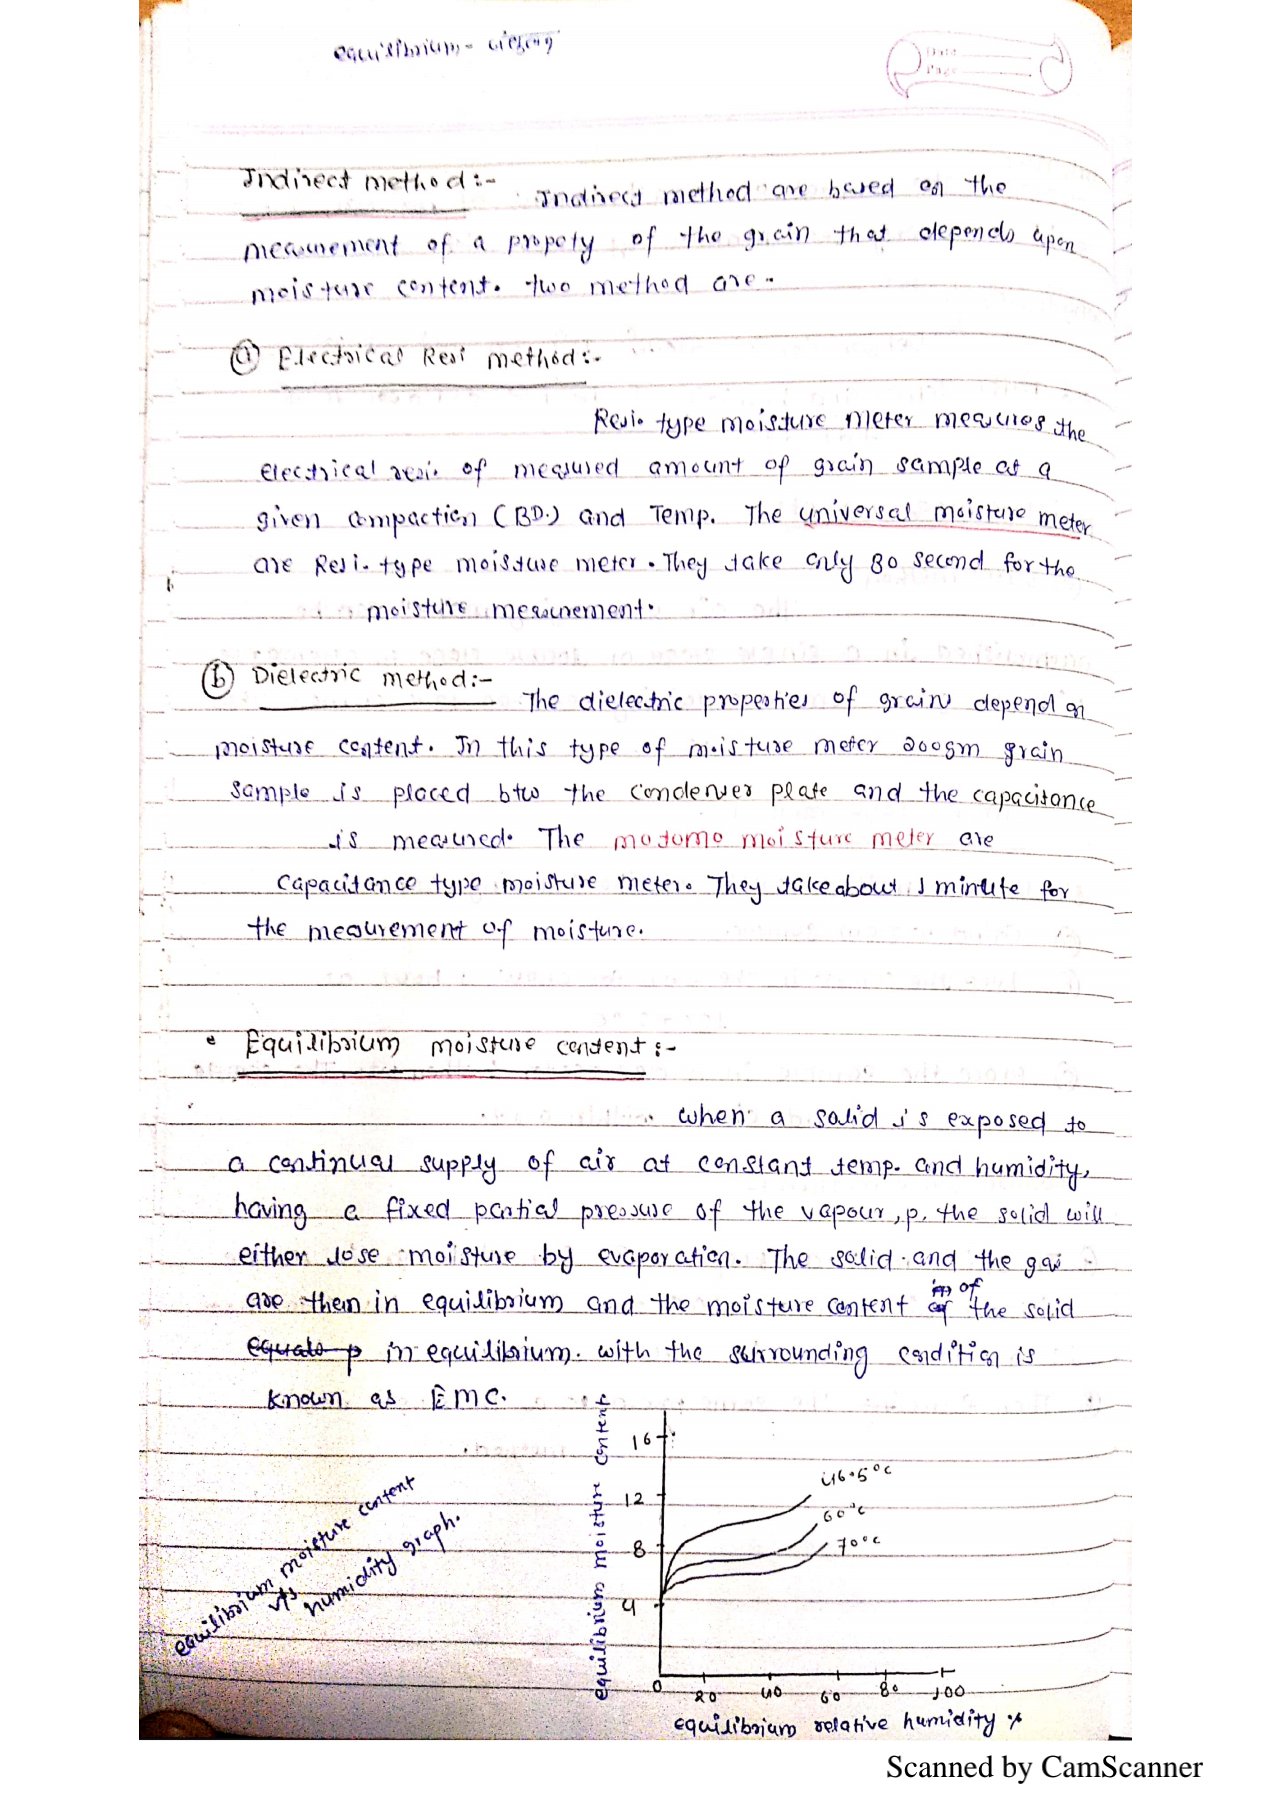 equilibrium -
Date
Page
Indirect method :-
Indirect method are based on the
measurement of a propety of the grain that depends upon
moisture content. two method are -
(a) Electrical Resi method :-
Resi. type moisture meter measures the
electrical resi. of measured amount of grain sample at a
given compaction (BD.) and Temp. The universal moisture meter
are Resi. type moisture meter. They take only 30 second for the
moisture measurement.
(b) Dielectric method :-
The dielectric properties of grains depend on
moisture content. In this type of moisture meter 200gm grain
sample is placed btw the condenser plate and the capacitance
is measured. The motomo moisture meter are
capacitance type moisture meter. They take about 1 minute for
the measurement of moisture.
• Equilibrium moisture content :-
when a solid is exposed to
a continual supply of air at constant temp. and humidity,
having a fixed partial pressure of the vapour, p. the solid will
either lose moisture by evaporation. The solid and the gas
are then in equilibrium and the moisture content of the solid
equals p in equilibrium. with the surrounding condition is
known as EMC.
equilibrium moisture content
v/s
humidity graph.
equilibrium moisture content
16
12
8
4
46.5°c
60°c
70°c
0 20 40 60 80 100
equilibrium relative humidity %
Scanned by CamScanner